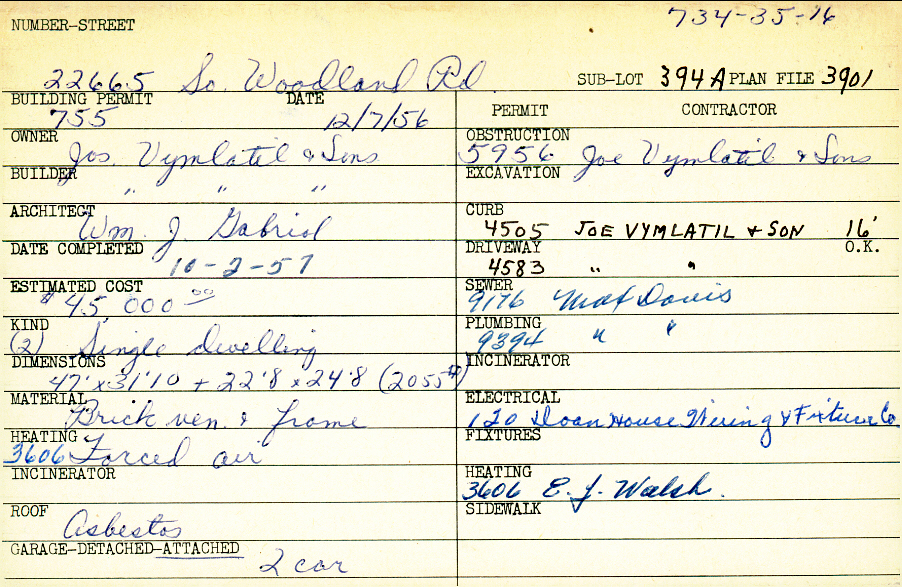 734-35-16
NUMBER-STREET
22665 So. Woodland Rd
SUB-LOT 394A PLAN FILE 3901
BUILDING PERMIT DATE
755 12/7/56
OWNER
Jos. Vymlatil & Sons
BUILDER
" " "
ARCHITECT
Wm. J. Gabriel
DATE COMPLETED
10-2-57
ESTIMATED COST
$45,000 00
KIND
(2) Single dwelling
DIMENSIONS
47'x31'10 + 22'8 x 24'8 (2055#)
MATERIAL
Brick ven. & frame
HEATING
3606 Forced air
INCINERATOR
ROOF
Asbestos
GARAGE-DETACHED-ATTACHED
2 car
PERMIT CONTRACTOR
OBSTRUCTION
5956 Joe Vymlatil & Sons
EXCAVATION
CURB
4505 JOE VYMLATIL & SON 16'
DRIVEWAY O.K.
4583 " "
SEWER
9176 Mat Davis
PLUMBING
9394 " "
INCINERATOR
ELECTRICAL
120 Doan House Wiring & Fixture Co
FIXTURES
HEATING
3606 E. J. Walsh.
SIDEWALK